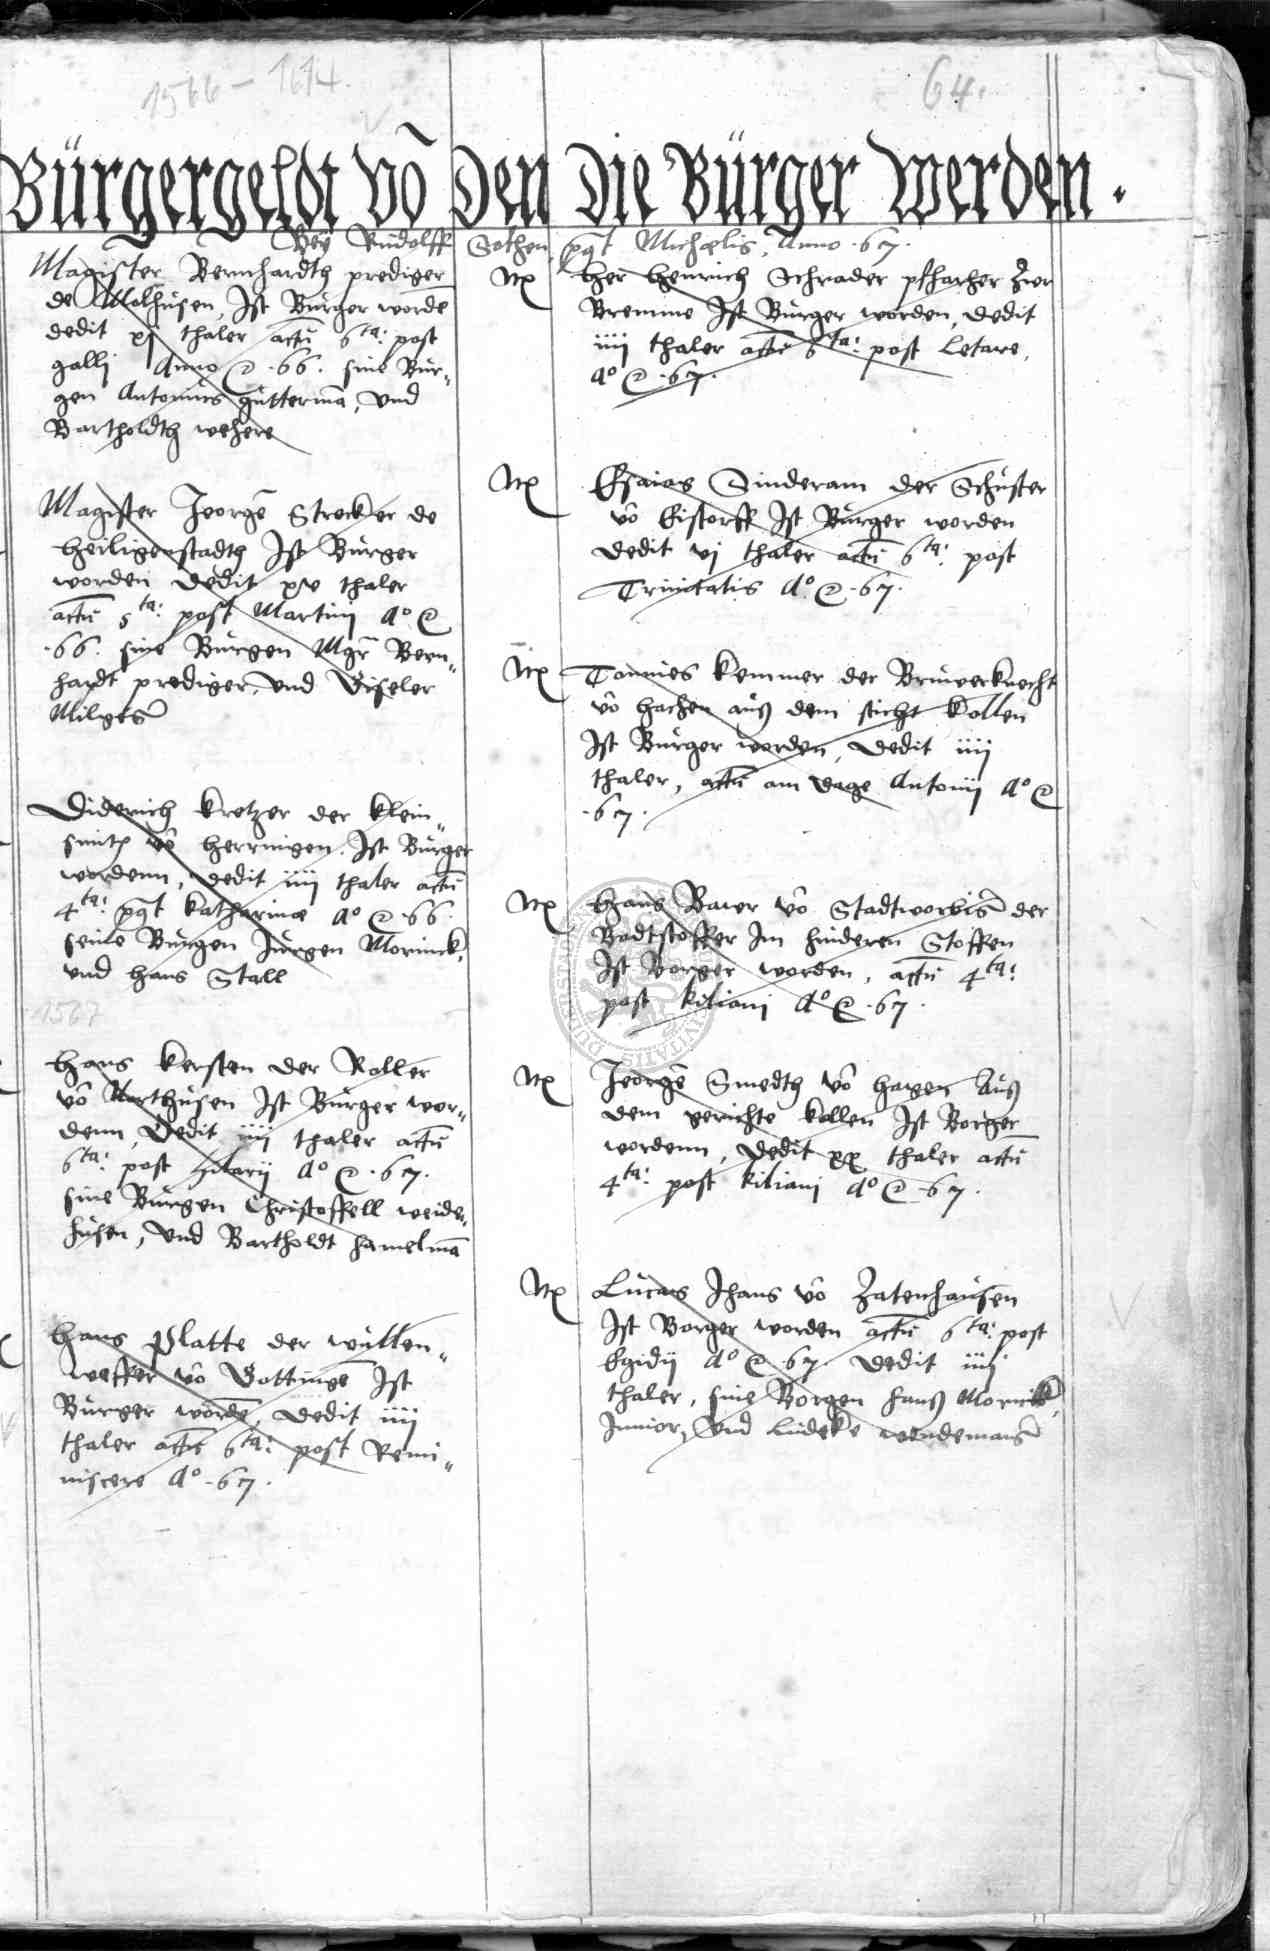 1566 - 1614.
64.
Bürgergeldt vō Den Die Bürger Werden.
Bey Rudolff Sothen, pqt Michaelis, Anno .67.
Magister Bernhardth prediger
de Molhusen, Ist Burger wordē
dedit xj thaler actū 6ta: post
galli Anno .66. sine Bur„
gen Antonius guttermā, Und
Bartholdth wehere
Magister Jeorgē Strecker de
heiligenstadth Ist Burger
worden dedit xv thaler
actū 5ta: post Martinj Ao
.66. sine Burgen Mgr Bern„
hardt prediger, Und Giseler
Milges
Diderich kretzer der klein„
smit vō herringen. Ist Burger
wordenn, dedit iiij thaler actū
4ta: pqt katharinæ Ao .66.
seine Burgen Jurgen Morinck,
Und Hans Stall
1567
Hans kersten der Roller
vō Northusen Ist Burger wor„
denn, Dedit iiij thaler actū
6ta: post Hilarij Ao .67.
sine Burgen Christoffell weiden„
husen, Und Bartholdt hamelmā
Hans Platte der wullen„
weffer vō Gottingē Ist
Burger wordē, dedit iiij
thaler actū 6ta: post Remi„
niscere Ao .67.
Itē Her Henrich Schrader pffarher Zwr
Bremme Ist Burger worden, dedit
iiij thaler actū 6ta: post Letare,
Ao .67.
Itē Esaias Sinderam der Schuster
vō Eistorff Ist Burger worden
dedit vj thaler actū 6ta: post
Trinitatis Ao .67.
Itē Tonnies kemmer der Bruwerknecht
vō hachen auß dem sticht Kollen
Ist Burger worden, dedit iiij
thaler, actū am dage Antonij Ao
.67.
Itē Hans Bawer vō Stadtworbis der
Badtstoffer Im hinderen Stoffen
Ist Borger worden, actū 4ta:
post kiliani Ao .67.
Itē Jeorgē Smedth vō hagen Auß
dem gerichte kollen Ist Borger
wordenn, dedit xx thaler actū
4ta: post kiliani Ao .67.
Itē Lucas Jhans vō Zatenhausen
Ist Borger worden actū 6ta: post
Egidij Ao .67. dedit iiij
thaler, sine Borgen hanß Morinck
Junior, Und Ludeke